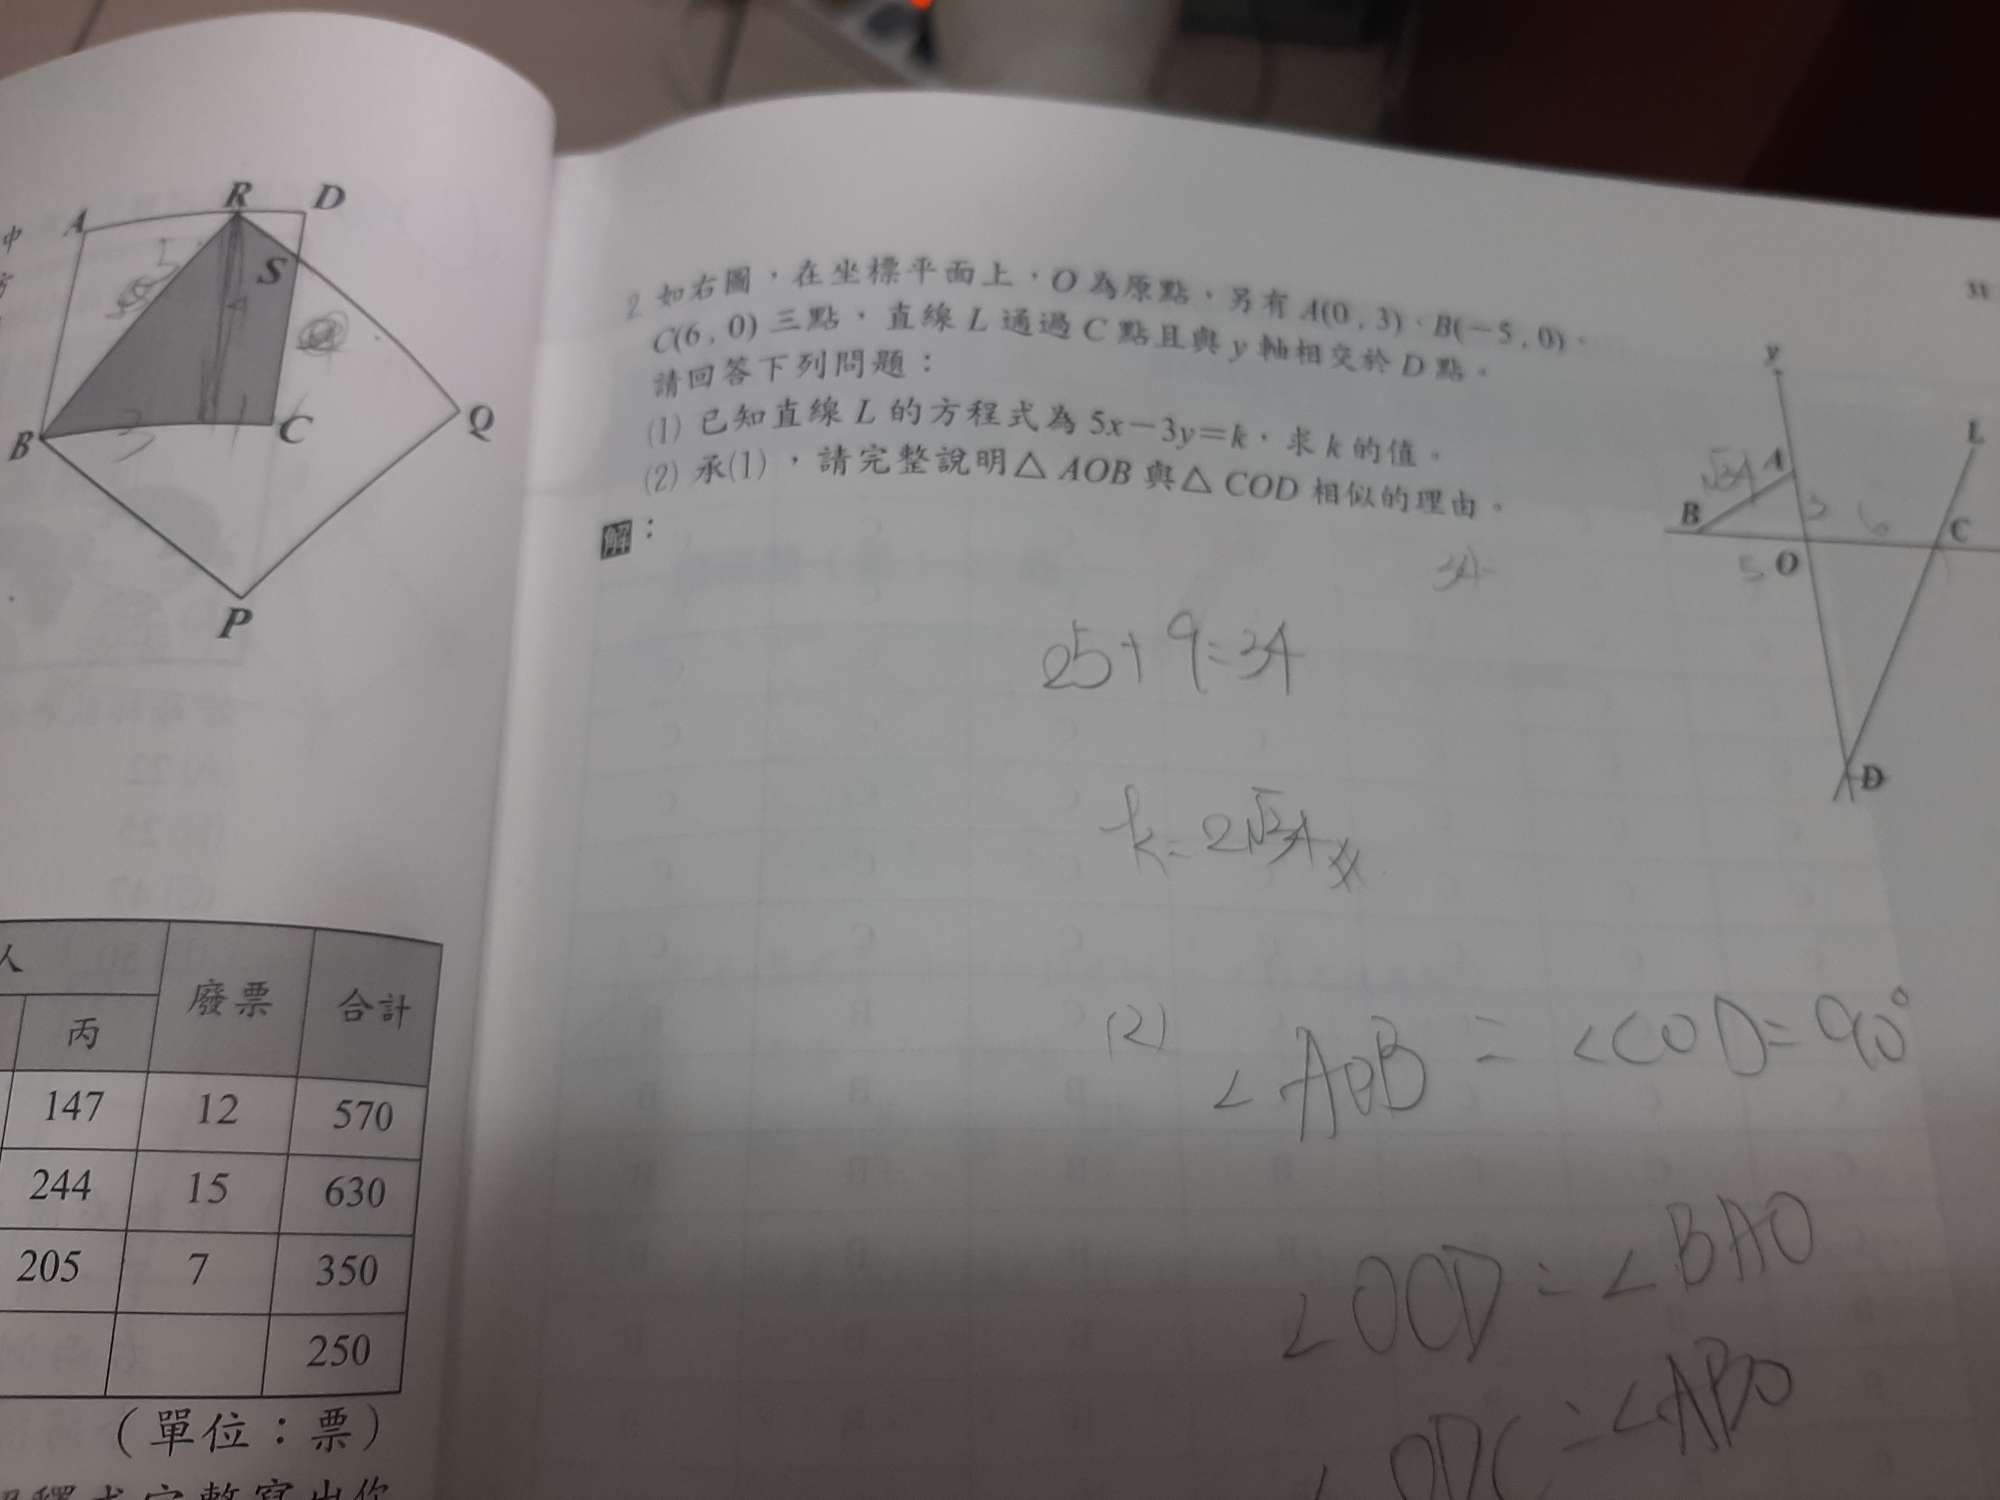 中
方
A
R
D
S
5
3
4
1
B
C
Q
P
人
丙
廢票
合計
147
12
570
244
15
630
205
7
350
250
（單位：票）
31
2. 如右圖，在坐標平面上，O 為原點，另有 A(0 , 3)、B(−5 , 0)、
C(6 , 0) 三點，直線 L 通過 C 點且與 y 軸相交於 D 點。
請回答下列問題：
(1) 已知直線 L 的方程式為 5x−3y=k，求 k 的值。
(2) 承(1)，請完整說明△ AOB 與△ COD 相似的理由。
解：
y
L
A
√34
B
3
6
C
5
O
D
34
25+9=34
k=2√34
(2)
∠AOB = ∠COD=90°
∠OCD=∠BAO
∠ODC=∠ABO